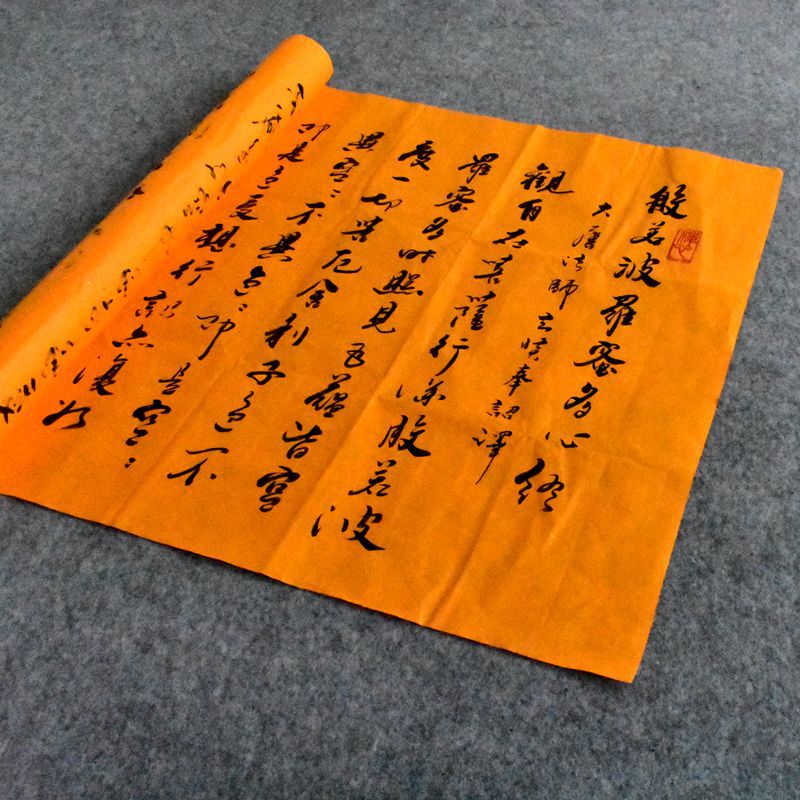 般若波羅蜜多心經
大唐法師玄奘奉詔譯
觀自在菩薩行深般若波
羅蜜多時照見五蘊皆空
度一切苦厄舍利子色不
異空〻不異色〻即是空〻
即是色受想行識亦復如